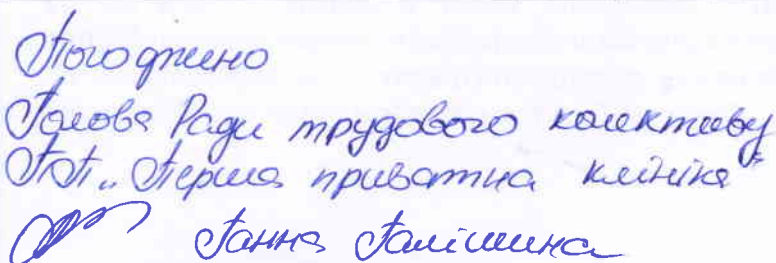 Погоджено
Голова Ради трудового колективу
ПП „Перша приватна клініка"
Ганна Галішина